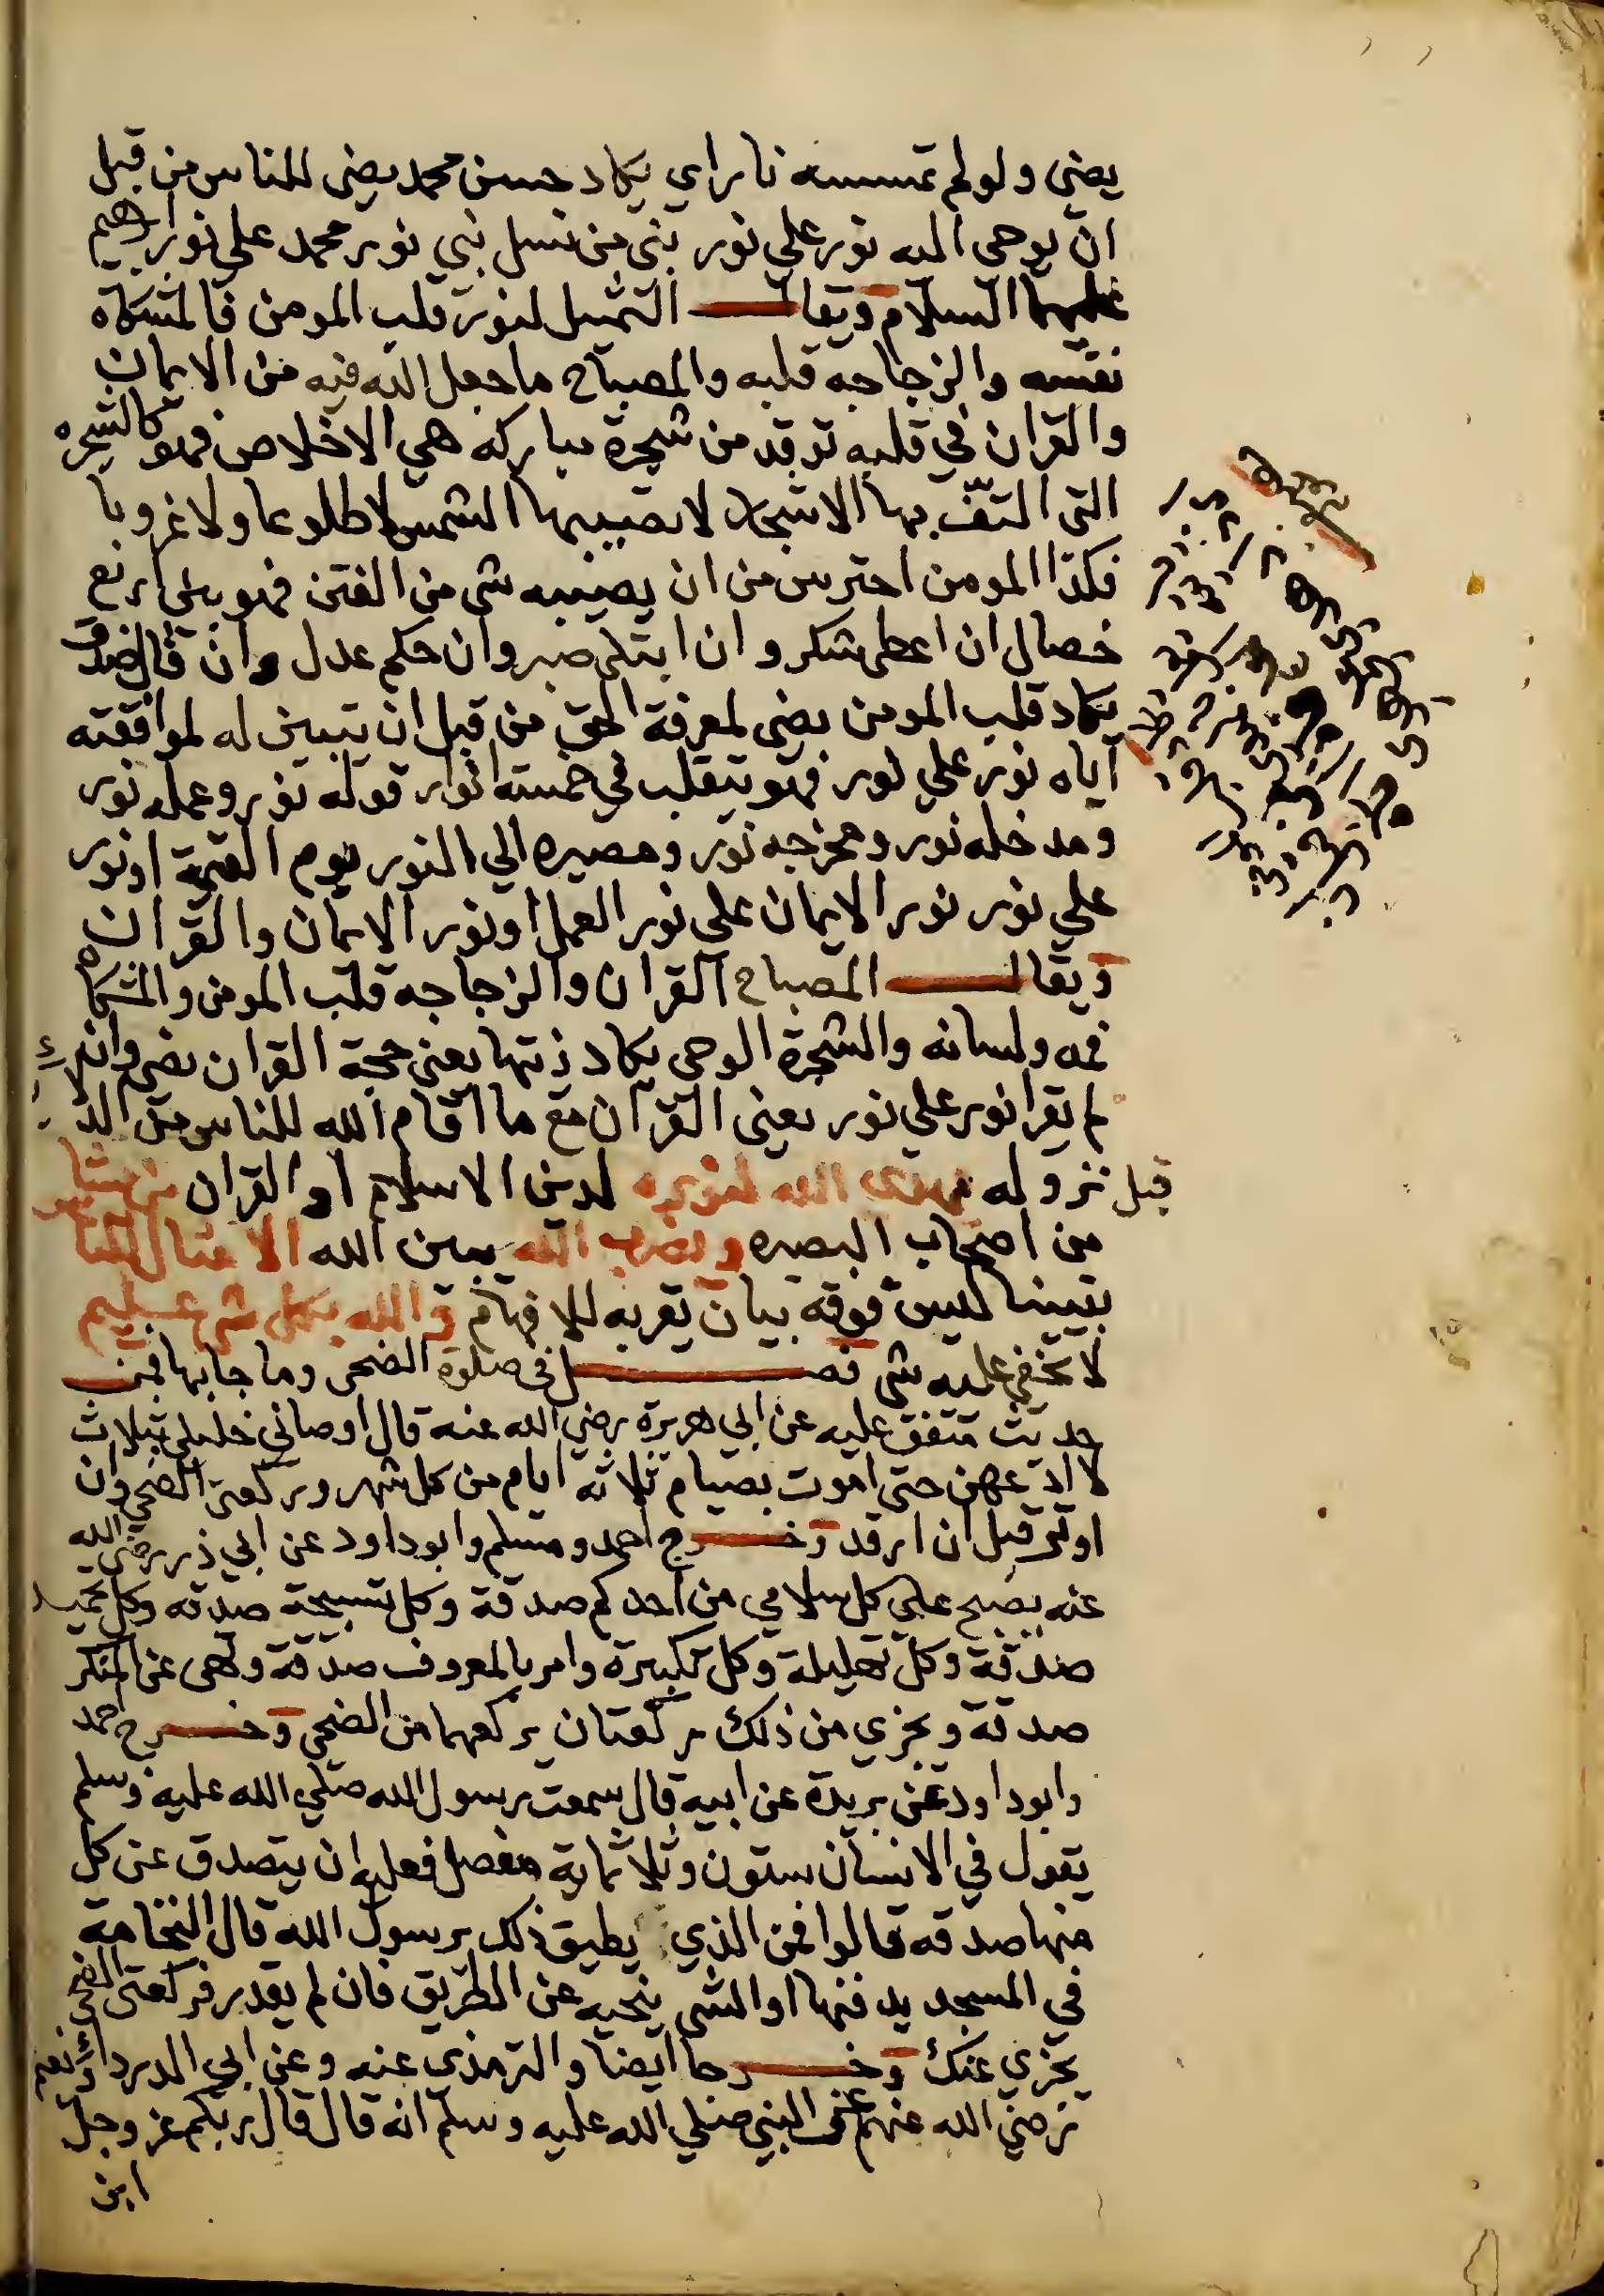 يضي ولو لم تمسسه نار اي يكاد حسن محمد يضي للناس من قبل
ان يوحى اليه نور على نور نبي من نسل نبي نور محمد على نور ابراهيم
عليهما السلام ويقال التمثيل لنور قلب المومن فالمشكاه
نفسه والزجاجه قلبه والمصباح ما جعل الله فيه من الايمان
والقران في قلبه توقد من شجرة مباركه هي الاخلاص فهو كالشجره
التى التفّ بها الاشجار لا تصيبها الشمس لا طلوعا ولا غروبا
فكذا المومن احترس من ان يصيبه شى من الفتن فهو بين اربع
خصال ان اعطى شكر وان ابتلى صبر وان حكم عدل وان قال صدق
يكاد قلب المومن يضي لمعرفة الحق من قبل ان يتبين له لموافقته
اياه نور على نور فهو يتقلب في خمسة انوار قوله نور وعمله نور
ومدخله نور ومخرجه نور ومصيره الي النور يوم القيمة او نور
علي نور نور الايمان على نور العمل او نور الايمان والقران
ويقال المصباح القران والزجاجه قلب المومن والمشكاه
فمه ولسانه والشجرة الوحى يكاد زيتها يعنى حجة القران يضي وان
لم يقرا نور علي نور يعنى القران مع ما اقام الله للناس من الدلائل
قبل نزوله يهدى الله لنوره لدين الاسلام او القران من يشا
من اصحاب البصيره ويضرب الله يبين الله الامثال للناس
تبيينا ليس فوقه بيان تقربه للافهام والله بكل شى عليم
لا يخفى عليه شى فصل في صلوة الضحى وما جا بها فمن
حديث متفق عليه عن ابي هريرة رضي الله عنه قال اوصاني خليلي بثلاث
لا ادعهن حتى اموت بصيام ثلاثه ايام من كل شهر وركعتى الضحى وان
اوتر قبل ان ارقد وخرج احمد ومسلم وابو داود عن ابي ذر رضى الله
عنه يصبح علي كل سلامي من احدكم صدقة وكل تسبيحة صدقه وكل تحميد
صدقة وكل تهليلة وكل تكبيرة وامر بالمعروف صدقة ونهى عن المنكر
صدقة ويجزي من ذلك ركعتان يركعهما من الضحى وخرج احمد
وابو داود عن بريدة عن ابيه قال سمعت رسول الله صلي الله عليه وسلم
يقول في الانسان ستون وثلاثماية مفصل فعليه ان يتصدق عن كل
منها صدقه قالوا فمن الذي يطيق ذلك يرسول الله قال النخامة
في المسجد يدفنها او الشى ينحيه عن الطريق فان لم يقدر فركعتى الضحى
يجزي عنك وخرجا ايضا والترمذي عنه وعن ابي الدرداء ونعيم
رضي الله عنهم عن النبي صلي الله عليه وسلم انه قال قال ربكم عز وجل
ابن